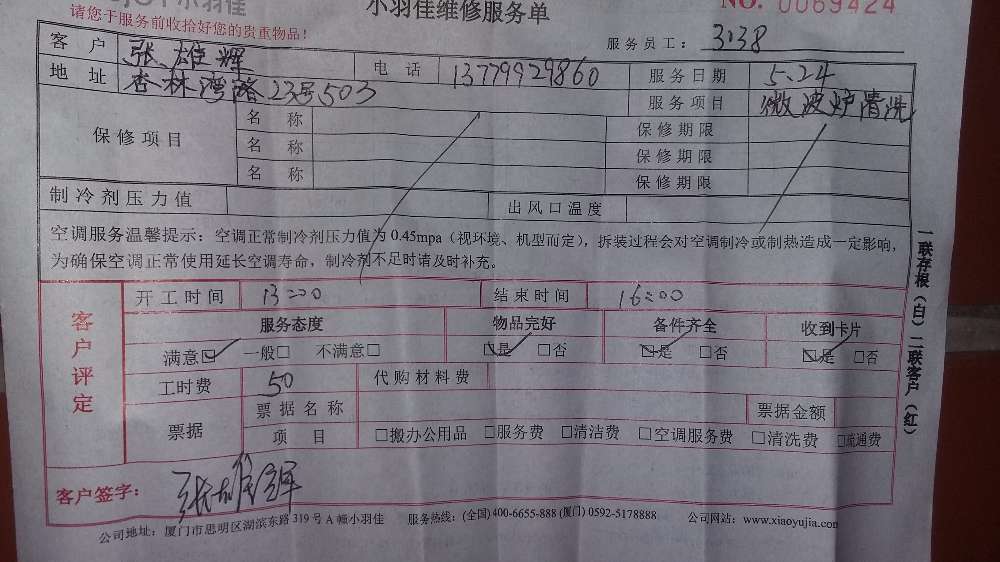 小羽佳
小羽佳维修服务单
NO. 0069424
请您于服务前收拾好您的贵重物品！
服务员工： 3138
客户 张雄辉 电话 13779929860 服务日期 5.24
地址 杏林湾路23号503 服务项目 微波炉清洗
保修项目 名称 保修期限
名称 保修期限
名称 保修期限
制冷剂压力值 出风口温度
空调服务温馨提示：空调正常制冷剂压力值为0.45mpa（视环境、机型而定），拆装过程会对空调制冷或制热造成一定影响，
为确保空调正常使用延长空调寿命，制冷剂不足时请及时补充。
客户评定
开工时间 13:00 结束时间 16:00
服务态度 物品完好 备件齐全 收到卡片
满意☑ 一般□ 不满意□ ☑是 □否 ☑是 □否 ☑是 □否
工时费 50 代购材料费
票据 票据名称 票据金额
项目 □搬办公用品 □服务费 □清洁费 □空调服务费 □清洗费 □疏通费
客户签字： 张雄辉
公司地址：厦门市思明区湖滨东路319号A幢小羽佳 服务热线：(全国) 400-6655-888 (厦门) 0592-5178888 公司网站：www.xiaoyujia.com
一联存根（白）二联客户（红）